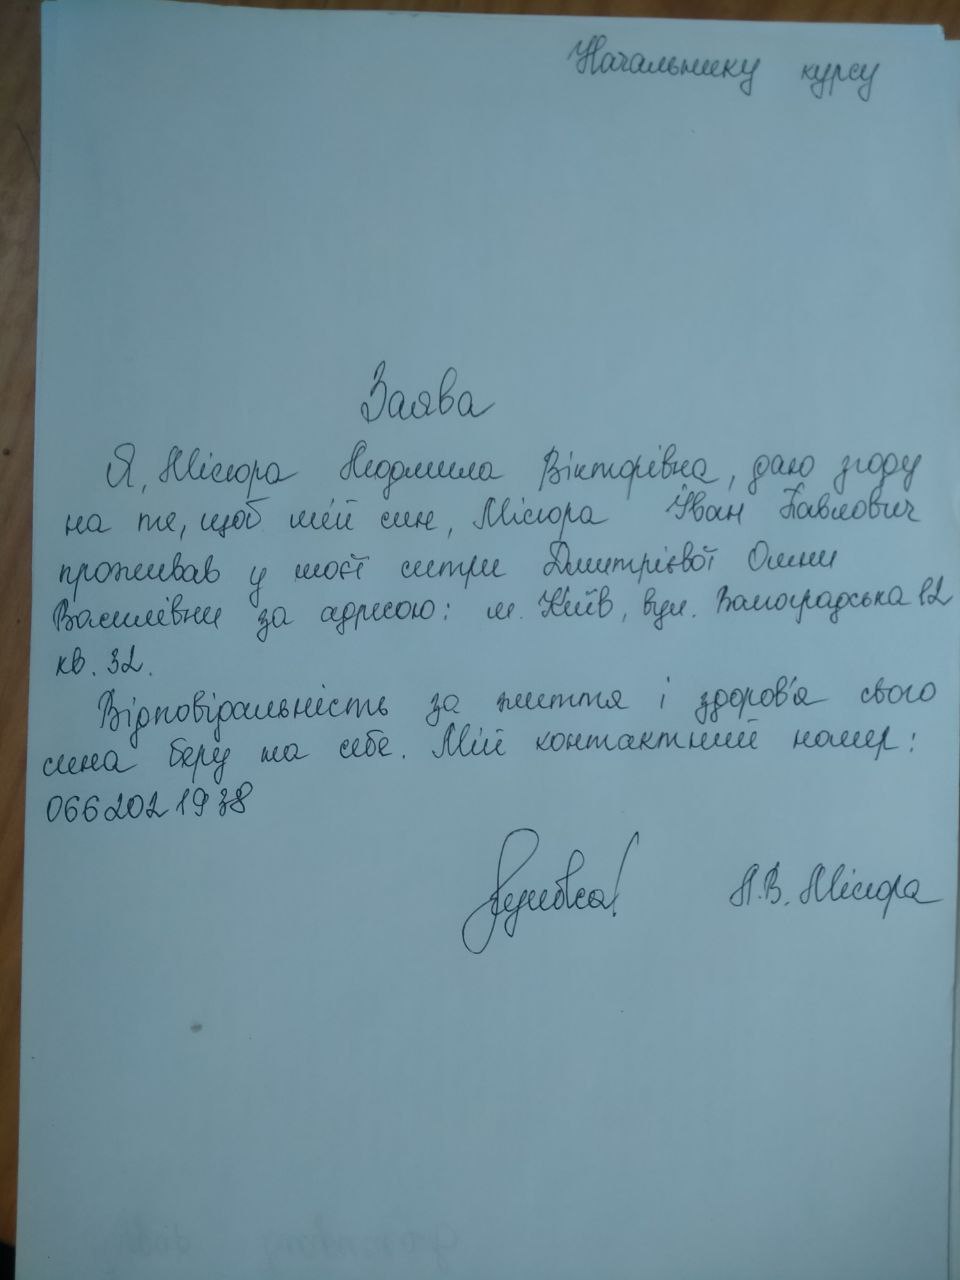 Начальнику курсу
Заява
Я, Місюра Людмила Вікторівна, даю згоду
на те, щоб мій син, Місюра Іван Павлович
проживав у моєї сестри Дмитрієвої Олени
Василівни за адресою: м. Київ, вул. 12
кв. 32.
Відповідальність за життя і здоров'я свого
сина беру на себе. Мій контактний номер:
066 202 19 38
Л.В. Місюра